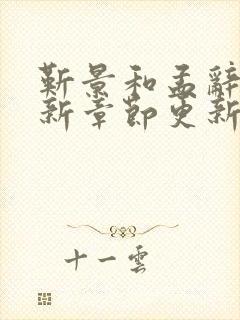 靳景和孟辭
新章節更新
十一雲